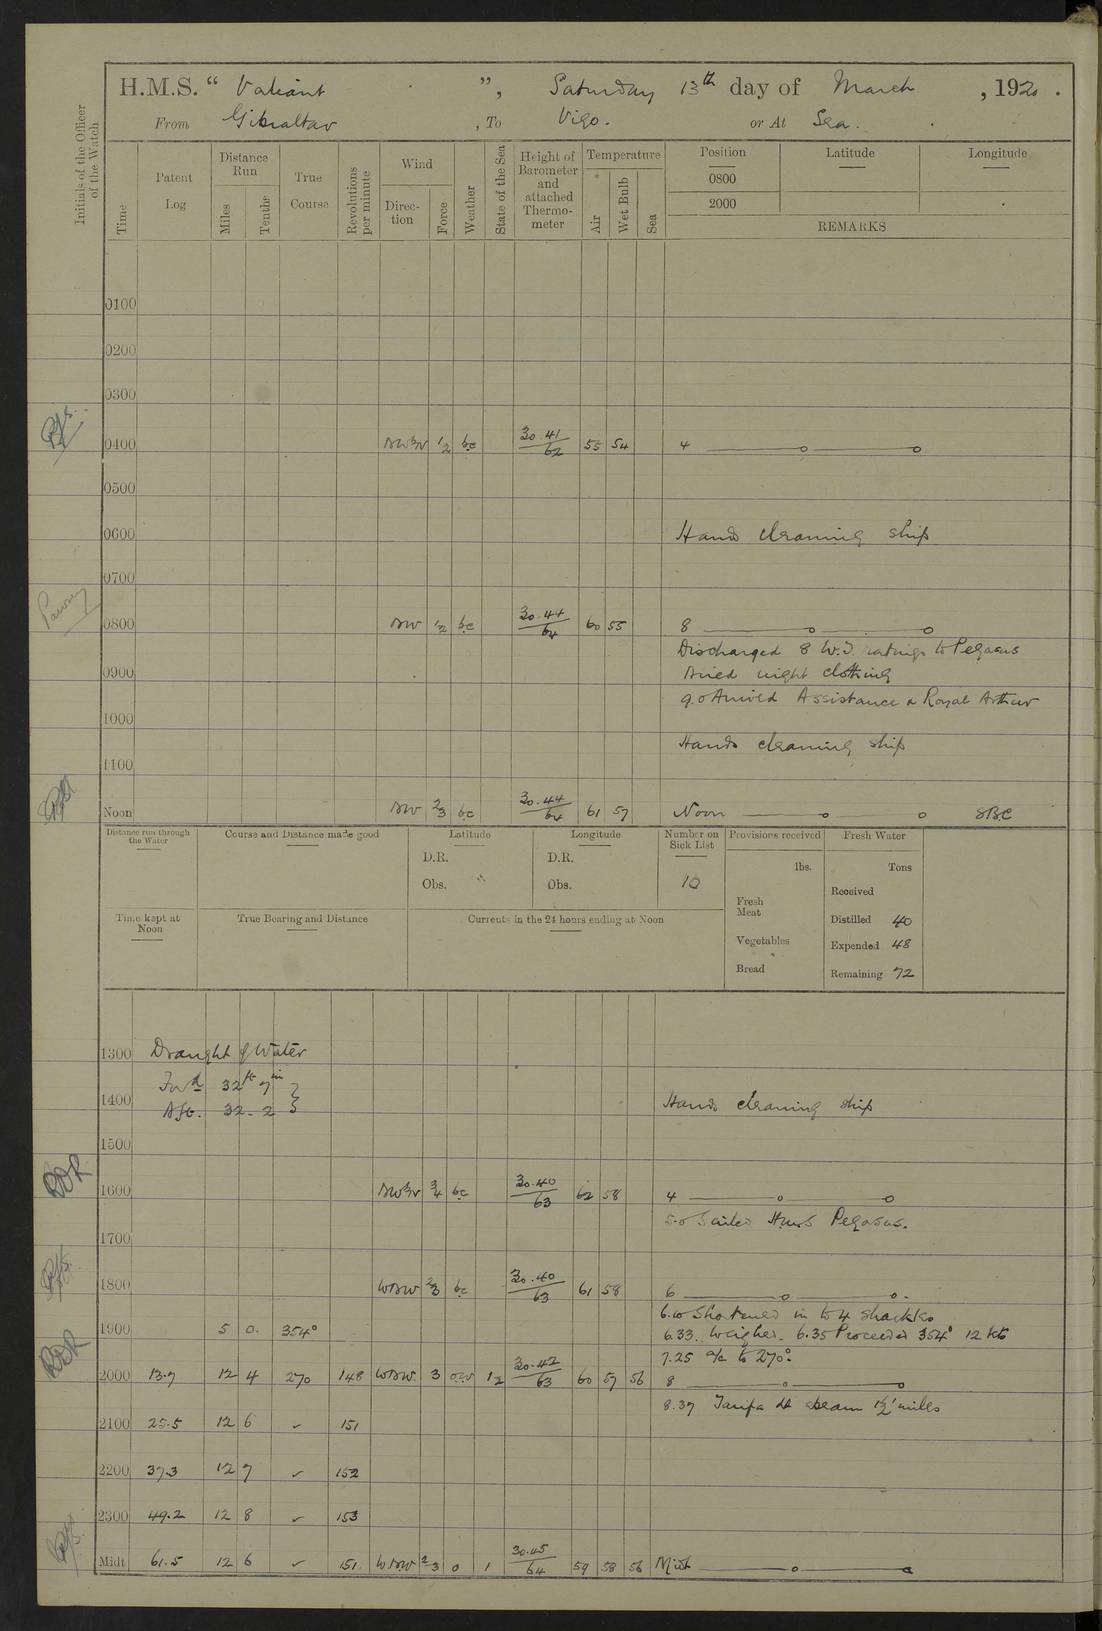 H.M.S. “ Valiant ”, Saturday 13th day of March , 1920 .
From Gibraltar , To Vigo. or At Sea.
Initials of the Officer of the Watch
Time
Patent Log
Distance Run
Miles
Tenths
True Course
Revolutions per minute
Wind
Direction
Force
Weather
State of the Sea
Height of Barometer and attached Thermometer
Temperature
Air
Wet Bulb
Sea
Position Latitude Longitude
0800
2000
REMARKS
0100
0200
0300
0400 ½ bc 30.41/62 55 54 4
0500
0600 Hands cleaning ship
0700
0800 NW ½ bc 30.44/64 60 55 8
Discharged 8 W.T. ratings to Pegasus
0900 Aired night clothing
9.0 Arrived Assistance & Royal Arthur
1000
Hands cleaning ship
1100
Noon NW 2/3 bc 30.44/64 61 57 Noon
Distance run through the Water
Course and Distance made good
Latitude
D.R.
Obs.
Longitude
D.R.
Obs.
Number on Sick List
10
Provisions received
lbs.
Fresh Meat
Vegetables
Bread
Fresh Water
Tons
Received
Distilled 40
Expended 48
Remaining 72
Time kept at Noon
True Bearing and Distance
Currents in the 24 hours ending at Noon
1300 Draught of Water
Forwd 32 ft 7 in
1400 Aft. 32 - 2 Hands cleaning ship
1500
1600 3/4 bc 30.40/63 62 58 4
5.0 Sailed H.M.S Pegasus.
1700
1800 WNW 2/3 bc 30.40/63 61 58 6
6.10 Shortened in to 4 shackles
1900 5 0. 354° 6.33. Weighed. 6.35 Proceeded 354° 12 kts
7.25 a/c to 270°.
2000 13.7 12 4 270 148 WNW. 3 12 30.42/63 60 57 56 8
8.37 Tarifa Lt abeam 1½' miles
2100 25.5 12 6 ✓ 151
2200 37.3 12 7 ✓ 152
2300 49.2 12 8 ✓ 153
Midt 61.5 12 6 ✓ 151 WNW 2/3 0 1 30.45/64 59 58 56 Midt